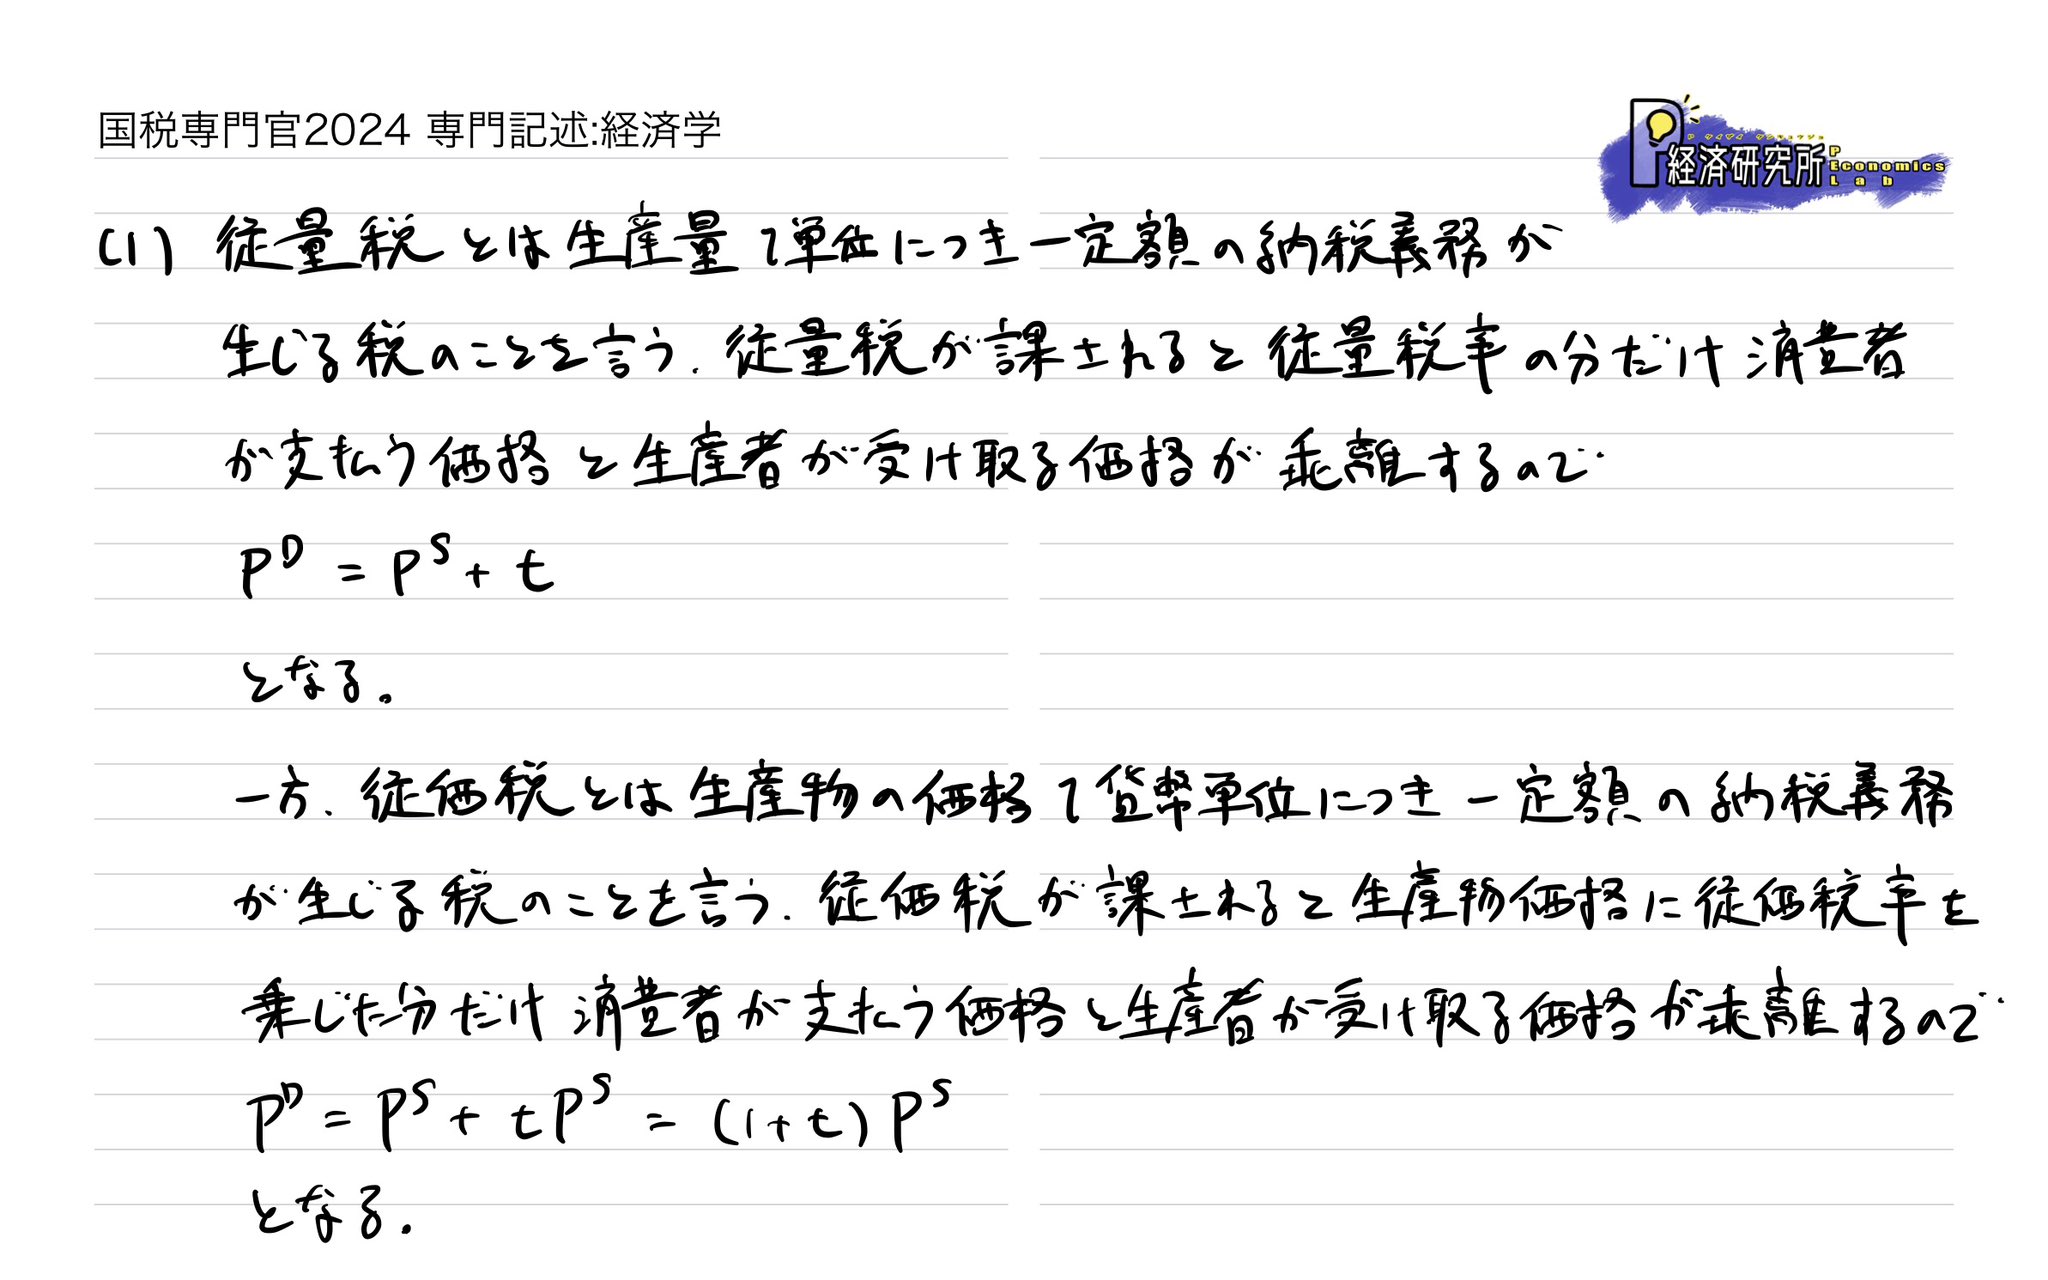 国税専門官2024 専門記述:経済学
P ケイザイ ケンキュウジョ
P経済研究所
P
Economics
Lab
(1) 従量税とは生産量1単位につき一定額の納税義務が
生じる税のことを言う. 従量税が課されると従量税率の分だけ消費者
が支払う価格と生産者が受け取る価格が乖離するので
P^D = P^S + t
となる。
一方. 従価税とは生産物の価格1貨幣単位につき一定額の納税義務
が生じる税のことを言う. 従価税が課されると生産物価格に従価税率を
乗じた分だけ消費者が支払う価格と生産者が受け取る価格が乖離するので
P^D = P^S + tP^S = (1+t)P^S
となる.